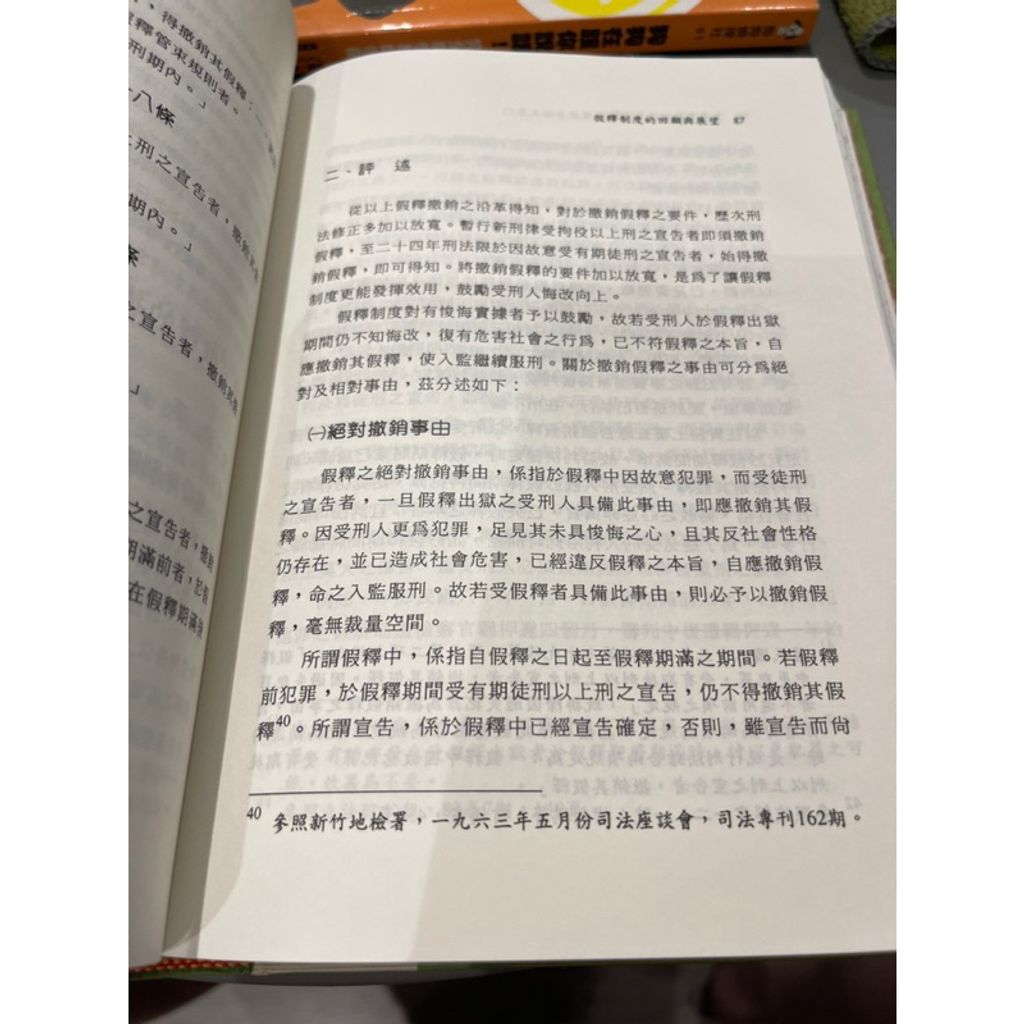 ，得撤銷其假釋：
釋管束規則者。
刑期內。」
十八條
刑之宣告者，撤銷
期內。」
條
之宣告者，撤銷其假
」
之宣告者，撤銷
期滿前者，於假
在假釋期滿後
假釋制度的回顧與展望 87
二、評 述
從以上假釋撤銷之沿革得知，對於撤銷假釋之要件，歷次刑
法修正多加以放寬。暫行新刑律受拘役以上刑之宣告者即須撤銷
假釋，至二十四年刑法限於因故意受有期徒刑之宣告者，始得撤
銷假釋，即可得知。將撤銷假釋的要件加以放寬，是為了讓假釋
制度更能發揮效用，鼓勵受刑人悔改向上。
假釋制度對有悛悔實據者予以鼓勵，故若受刑人於假釋出獄
期間仍不知悔改，復有危害社會之行為，已不符假釋之本旨，自
應撤銷其假釋，使入監繼續服刑。關於撤銷假釋之事由可分為絕
對及相對事由，茲分述如下：
㈠絕對撤銷事由
假釋之絕對撤銷事由，係指於假釋中因故意犯罪，而受徒刑
之宣告者，一旦假釋出獄之受刑人具備此事由，即應撤銷其假
釋。因受刑人更為犯罪，足見其未具悛悔之心，且其反社會性格
仍存在，並已造成社會危害，已經違反假釋之本旨，自應撤銷假
釋，命之入監服刑。故若受假釋者具備此事由，則必予以撤銷假
釋，毫無裁量空間。
所謂假釋中，係指自假釋之日起至假釋期滿之期間。若假釋
前犯罪，於假釋期間受有期徒刑以上刑之宣告，仍不得撤銷其假
釋40。所謂宣告，係於假釋中已經宣告確定，否則，雖宣告而尚
40 參照新竹地檢署，一九六三年五月份司法座談會，司法專刊162期。